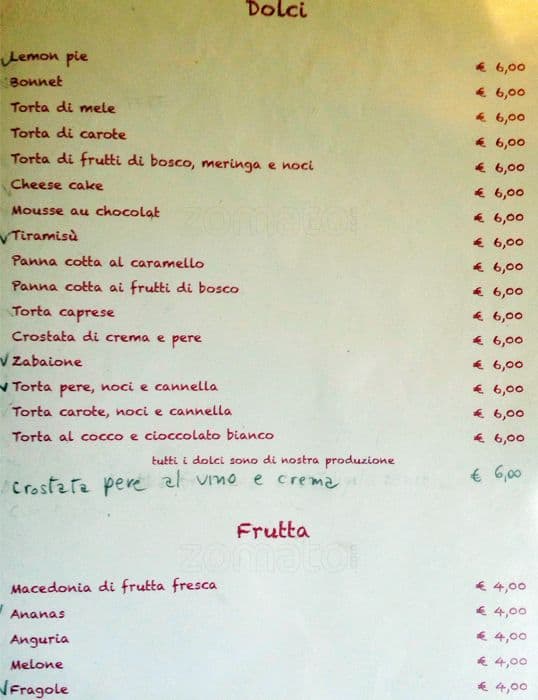 Dolci
Lemon pie € 6,00
Bonnet € 6,00
Torta di mele € 6,00
Torta di carote € 6,00
Torta di frutti di bosco, meringa e noci € 6,00
Cheese cake € 6,00
Mousse au chocolat € 6,00
zomato
Tiramisù € 6,00
Panna cotta al caramello € 6,00
Panna cotta ai frutti di bosco € 6,00
Torta caprese € 6,00
Crostata di crema e pere € 6,00
Zabaione € 6,00
Torta pere, noci e cannella € 6,00
Torta carote, noci e cannella € 6,00
Torta al cocco e cioccolato bianco € 6,00
tutti i dolci sono di nostra produzione
Crostata pere al vino e crema € 6,00
Frutta
zomato
Macedonia di frutta fresca € 4,00
Ananas € 4,00
Anguria € 4,00
Melone € 4,00
Fragole € 4,00